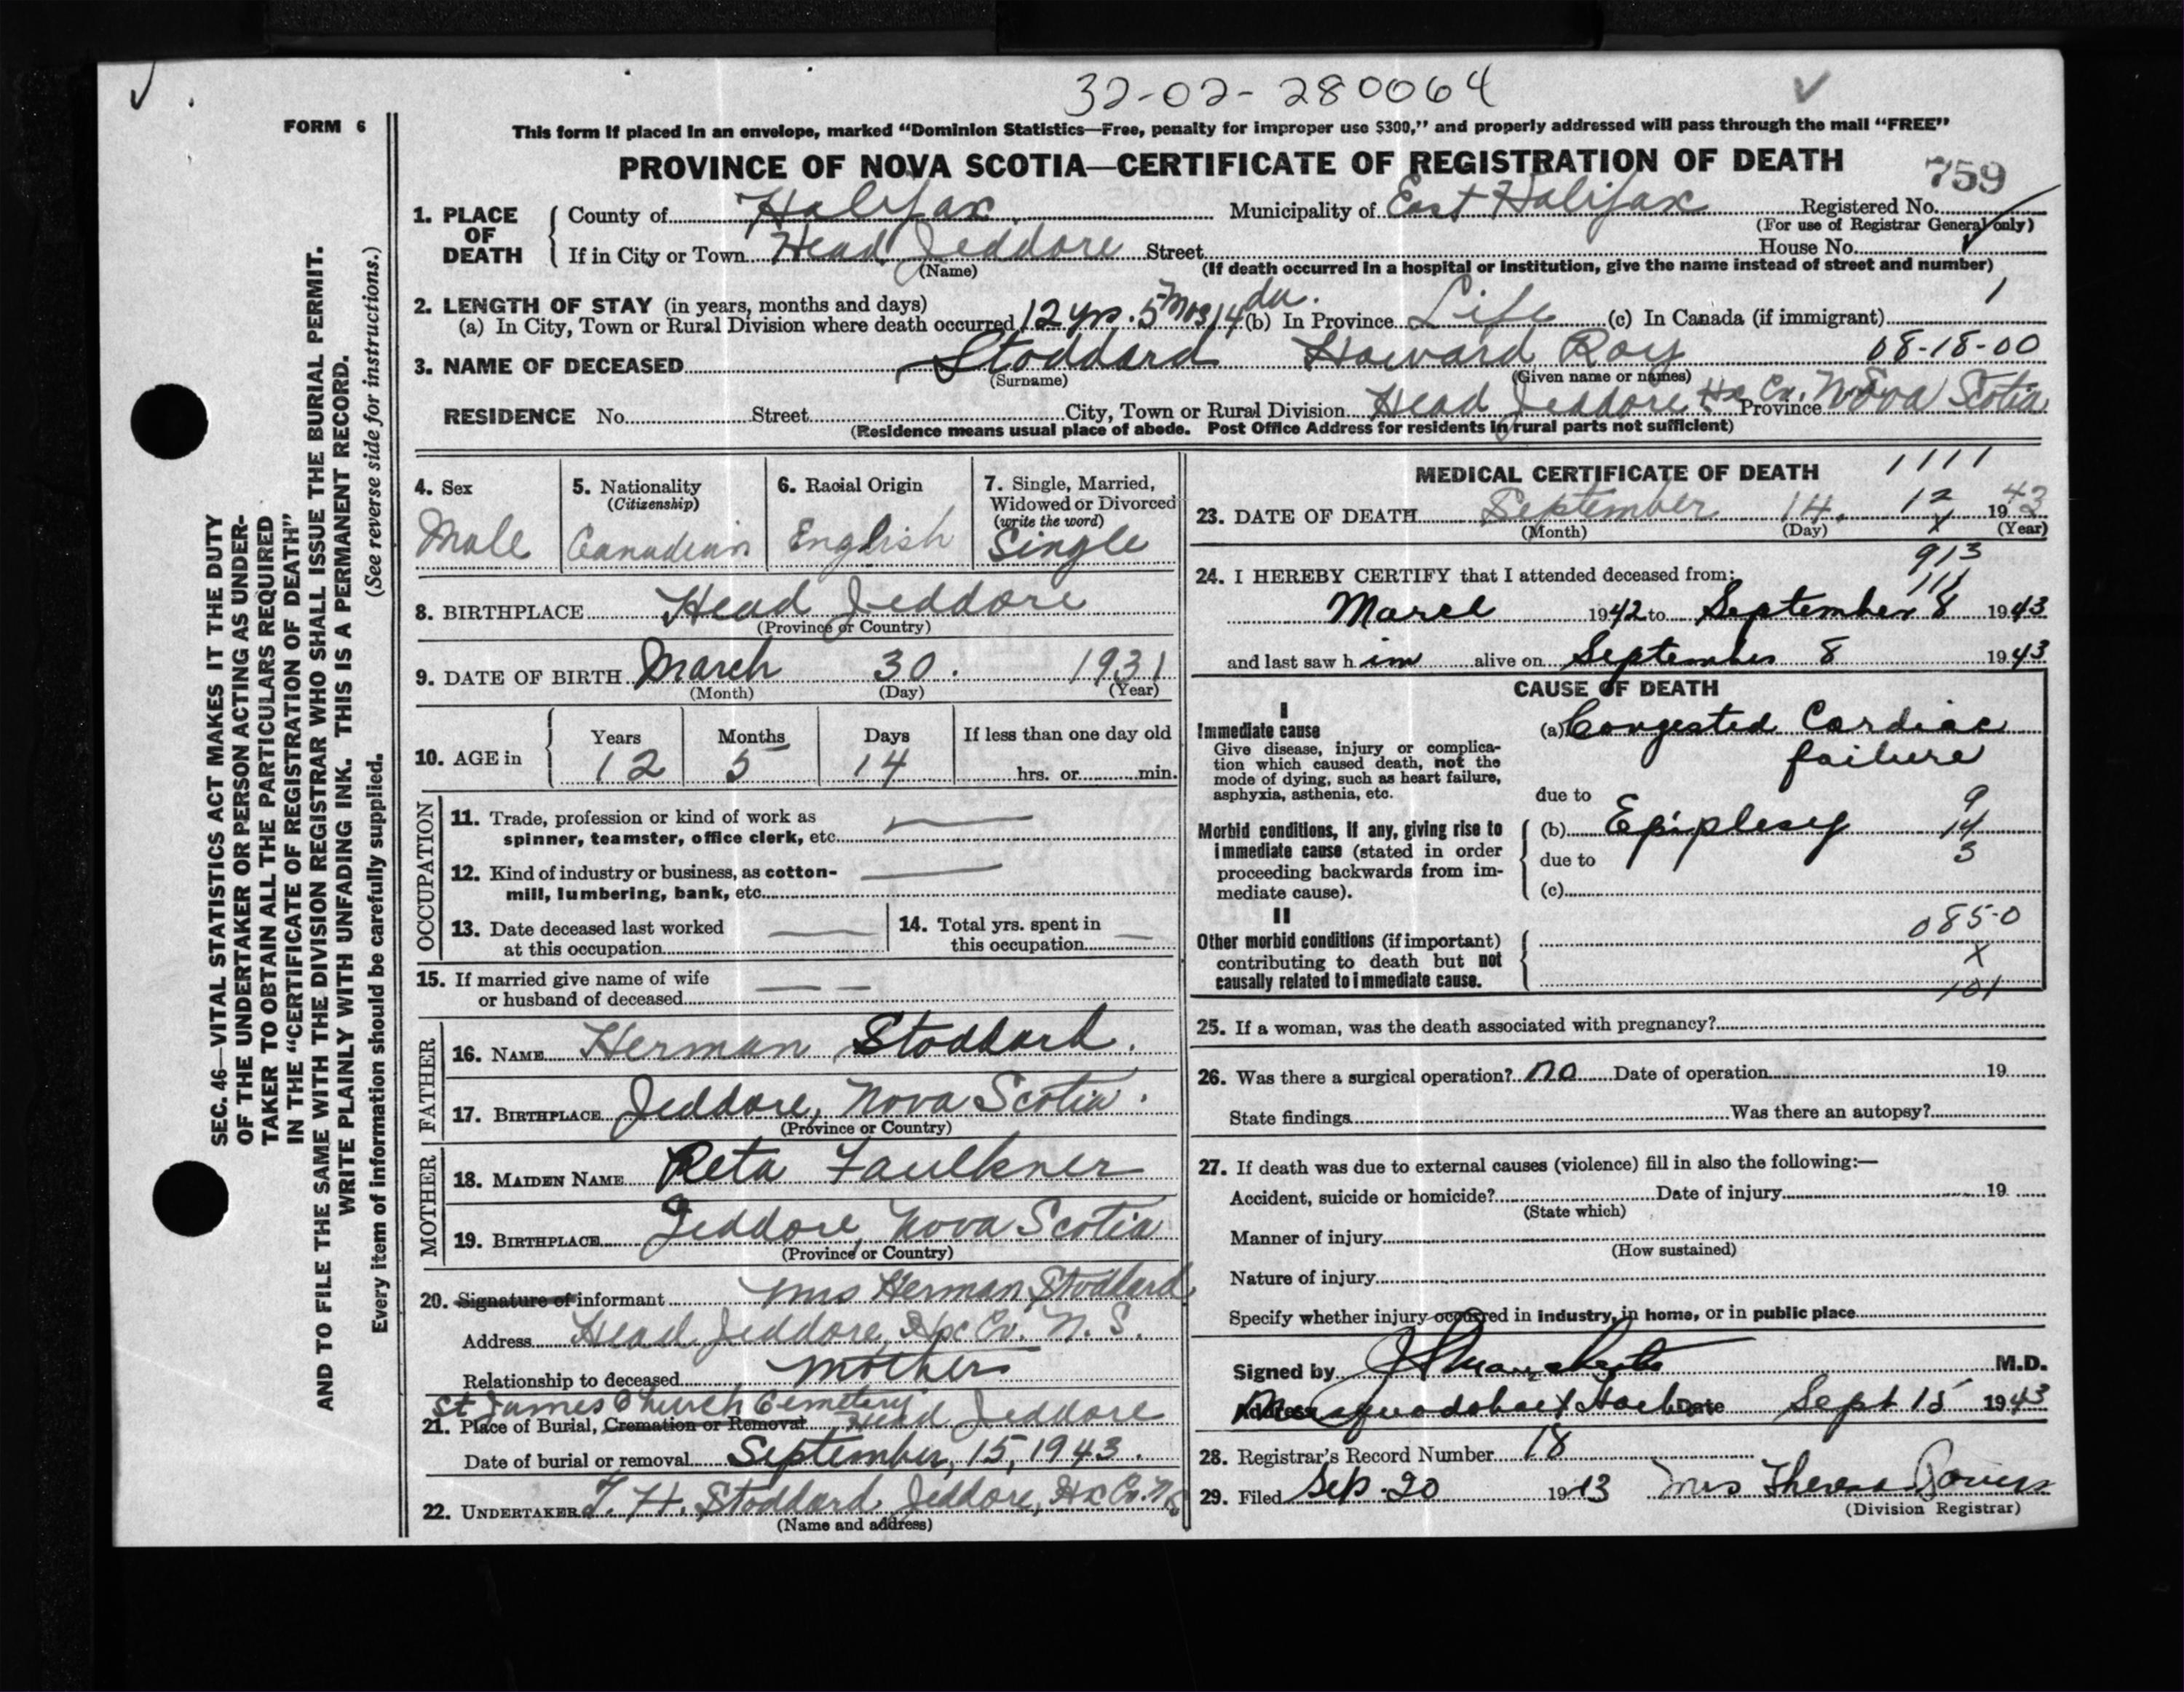 32-02-280064
FORM 6
This form if placed in an envelope, marked “Dominion Statistics—Free, penalty for improper use $300,” and properly addressed will pass through the mail “FREE”
PROVINCE OF NOVA SCOTIA—CERTIFICATE OF REGISTRATION OF DEATH
759
1. PLACE OF DEATH
County of Halifax Municipality of East Halifax Registered No.
(For use of Registrar General only)
If in City or Town Head Jeddore Street House No.
(Name) (If death occurred in a hospital or institution, give the name instead of street and number)
2. LENGTH OF STAY (in years, months and days)
1
(a) In City, Town or Rural Division where death occurred 12 yrs. 5 mos 14 da. (b) In Province Life (c) In Canada (if immigrant)
3. NAME OF DECEASED Stoddard Howard Roy 08-18-00
(Surname) (Given name or names)
RESIDENCE No. Street City, Town or Rural Division Head Jeddore Hx Co. Province Nova Scotia
(Residence means usual place of abode. Post Office Address for residents in rural parts not sufficient)
4. Sex
Male
5. Nationality
(Citizenship)
Canadian
6. Racial Origin
English
7. Single, Married,
Widowed or Divorced
(write the word)
Single
8. BIRTHPLACE Head Jeddore
(Province or Country)
9. DATE OF BIRTH March 30. 1931
(Month) (Day) (Year)
10. AGE in
Years Months Days If less than one day old
12 5 14 hrs. or min.
OCCUPATION
11. Trade, profession or kind of work as
spinner, teamster, office clerk, etc. —
12. Kind of industry or business, as cotton-
mill, lumbering, bank, etc. —
13. Date deceased last worked
at this occupation —
14. Total yrs. spent in
this occupation —
15. If married give name of wife
or husband of deceased — —
FATHER
16. NAME Herman Stoddard.
17. BIRTHPLACE Jeddore, Nova Scotia.
(Province or Country)
MOTHER
18. MAIDEN NAME Reta Faulkner
19. BIRTHPLACE Jeddore, Nova Scotia
(Province or Country)
20. Signature of informant Mrs Herman Stoddard
Address Head Jeddore, Hx Co. N. S.
Relationship to deceased mother
St James Church Cemetery
21. Place of Burial, Cremation or Removal Head Jeddore
Date of burial or removal September, 15, 1943.
22. UNDERTAKER T. H. Stoddard Jeddore, Hx Co. N.S
(Name and address)
MEDICAL CERTIFICATE OF DEATH 1111
12
23. DATE OF DEATH September 14. 1943
(Month) (Day) (Year)
913
24. I HEREBY CERTIFY that I attended deceased from:
111
March 1942 to September 8 1943
and last saw h im alive on September 8 1943
CAUSE OF DEATH
I
Immediate cause
Give disease, injury or complica-
tion which caused death, not the
mode of dying, such as heart failure,
asphyxia, asthenia, etc.
(a) Congested Cardiac
failure
due to
Morbid conditions, if any, giving rise to
immediate cause (stated in order
proceeding backwards from im-
mediate cause).
(b) Epiplesy
9
14
3
due to
(c)
II
Other morbid conditions (if important)
contributing to death but not
causally related to immediate cause.
085-0
X
101
25. If a woman, was the death associated with pregnancy?
26. Was there a surgical operation? no Date of operation 19
State findings Was there an autopsy?
27. If death was due to external causes (violence) fill in also the following:—
Accident, suicide or homicide? Date of injury 19
(State which)
Manner of injury
(How sustained)
Nature of injury
Specify whether injury occurred in industry, in home, or in public place
Signed by M.D.
Address Harbour Date Sept 15 1943
28. Registrar's Record Number 18
29. Filed Sep. 20 1943 Mrs Theresa
(Division Registrar)
SEC. 46—VITAL STATISTICS ACT MAKES IT THE DUTY
OF THE UNDERTAKER OR PERSON ACTING AS UNDER-
TAKER TO OBTAIN ALL THE PARTICULARS REQUIRED
IN THE “CERTIFICATE OF REGISTRATION OF DEATH”
AND TO FILE THE SAME WITH THE DIVISION REGISTRAR WHO SHALL ISSUE THE BURIAL PERMIT.
WRITE PLAINLY WITH UNFADING INK. THIS IS A PERMANENT RECORD.
Every item of information should be carefully supplied. (See reverse side for instructions.)